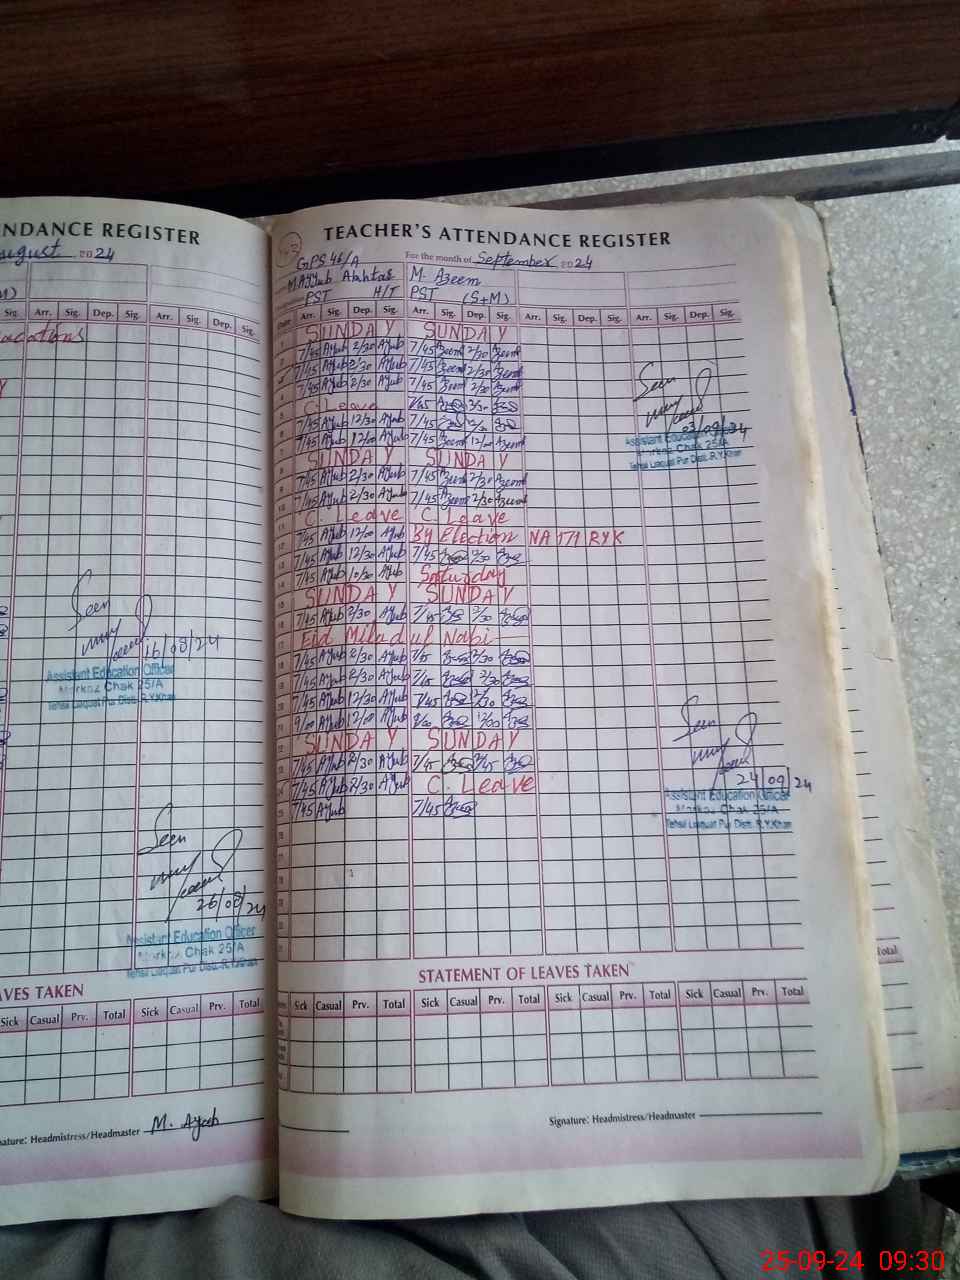 NDANCE REGISTER
August 2024
Sig. Arr. Sig. Dep. Sig. Arr. Sig. Dep. Sig.
Seen
16/08/24
Assistant Education Officer
Markaz Chak 25/A
Tehsil Liaquat Pur Distt. R.Y.Khan
Seen
26/08/24
Assistant Education Officer
Markaz Chak 25/A
Tehsil Liaquat Pur Distt. R.Y.Khan
AVES TAKEN
Sick Casual Prv. Total Sick Casual Prv. Total
nature: Headmistress/Headmaster M. Ayub
TEACHER'S ATTENDANCE REGISTER
GPS 46/A For the month of September 2024
M. Azeem
PST H/T PST (S+M)
Arr. Sig. Dep. Sig. Arr. Sig. Dep. Sig. Arr. Sig. Dep. Sig. Arr. Sig. Dep. Sig.
1 SUNDAY SUNDAY
2 7/45 Ayub 2/30 Ayub 7/45 Azeem 2/30 Azeem
3 7/45 Ayub 2/30 Ayub 7/45 Azeem 2/30 Azeem
4 7/45 Ayub 2/30 Ayub 7/45 Azeem 2/30 Azeem
5 C. Leave 7/45 2/30
6 7/45 Ayub 12/30 Ayub 7/45
7 7/45 Ayub 12/00 Ayub 7/45 Azeem 12/00 Azeem
8 SUNDAY SUNDAY
9 7/45 Ayub 2/30 Ayub 7/45 Azeem 2/30 Azeem
10 7/45 Ayub 2/30 Ayub 7/45 Azeem 2/30 Azeem
11 C. Leave C. Leave
12 7/45 Ayub 12/00 Ayub By Election NA 171 RYK
13 7/45 Ayub 12/30 Ayub 7/45 12/30
14 7/45 Ayub 10/30 Ayub Saturday
15 SUNDAY SUNDAY
16 7/45 Ayub 2/30 Ayub 7/45 2/30
17 Eid Milad ul Nabi
18 7/45 Ayub 2/30 Ayub 7/45 2/30
19 7/45 Ayub 2/30 Ayub 7/45 2/30
20 7/45 Ayub 12/30 Ayub 7/45 12/30
21 9/00 Ayub 12/00 Ayub 12/00
22 SUNDAY SUNDAY
23 7/45 Ayub 2/30 Ayub 7/45
24 7/45 Ayub 2/30 Ayub C. Leave
25 7/45 Ayub 7/45
Seen
03/09/24
Assistant Education Officer
Markaz Chak 25/A
Tehsil Liaquat Pur Distt. R.Y.Khan
Seen
24/09/24
Assistant Education Officer
Markaz Chak 25/A
Tehsil Liaquat Pur Distt. R.Y.Khan
STATEMENT OF LEAVES TAKEN
Sick Casual Prv. Total Sick Casual Prv. Total Sick Casual Prv. Total Sick Casual Prv. Total
Signature: Headmistress/Headmaster
otal
25-09-24 09:30